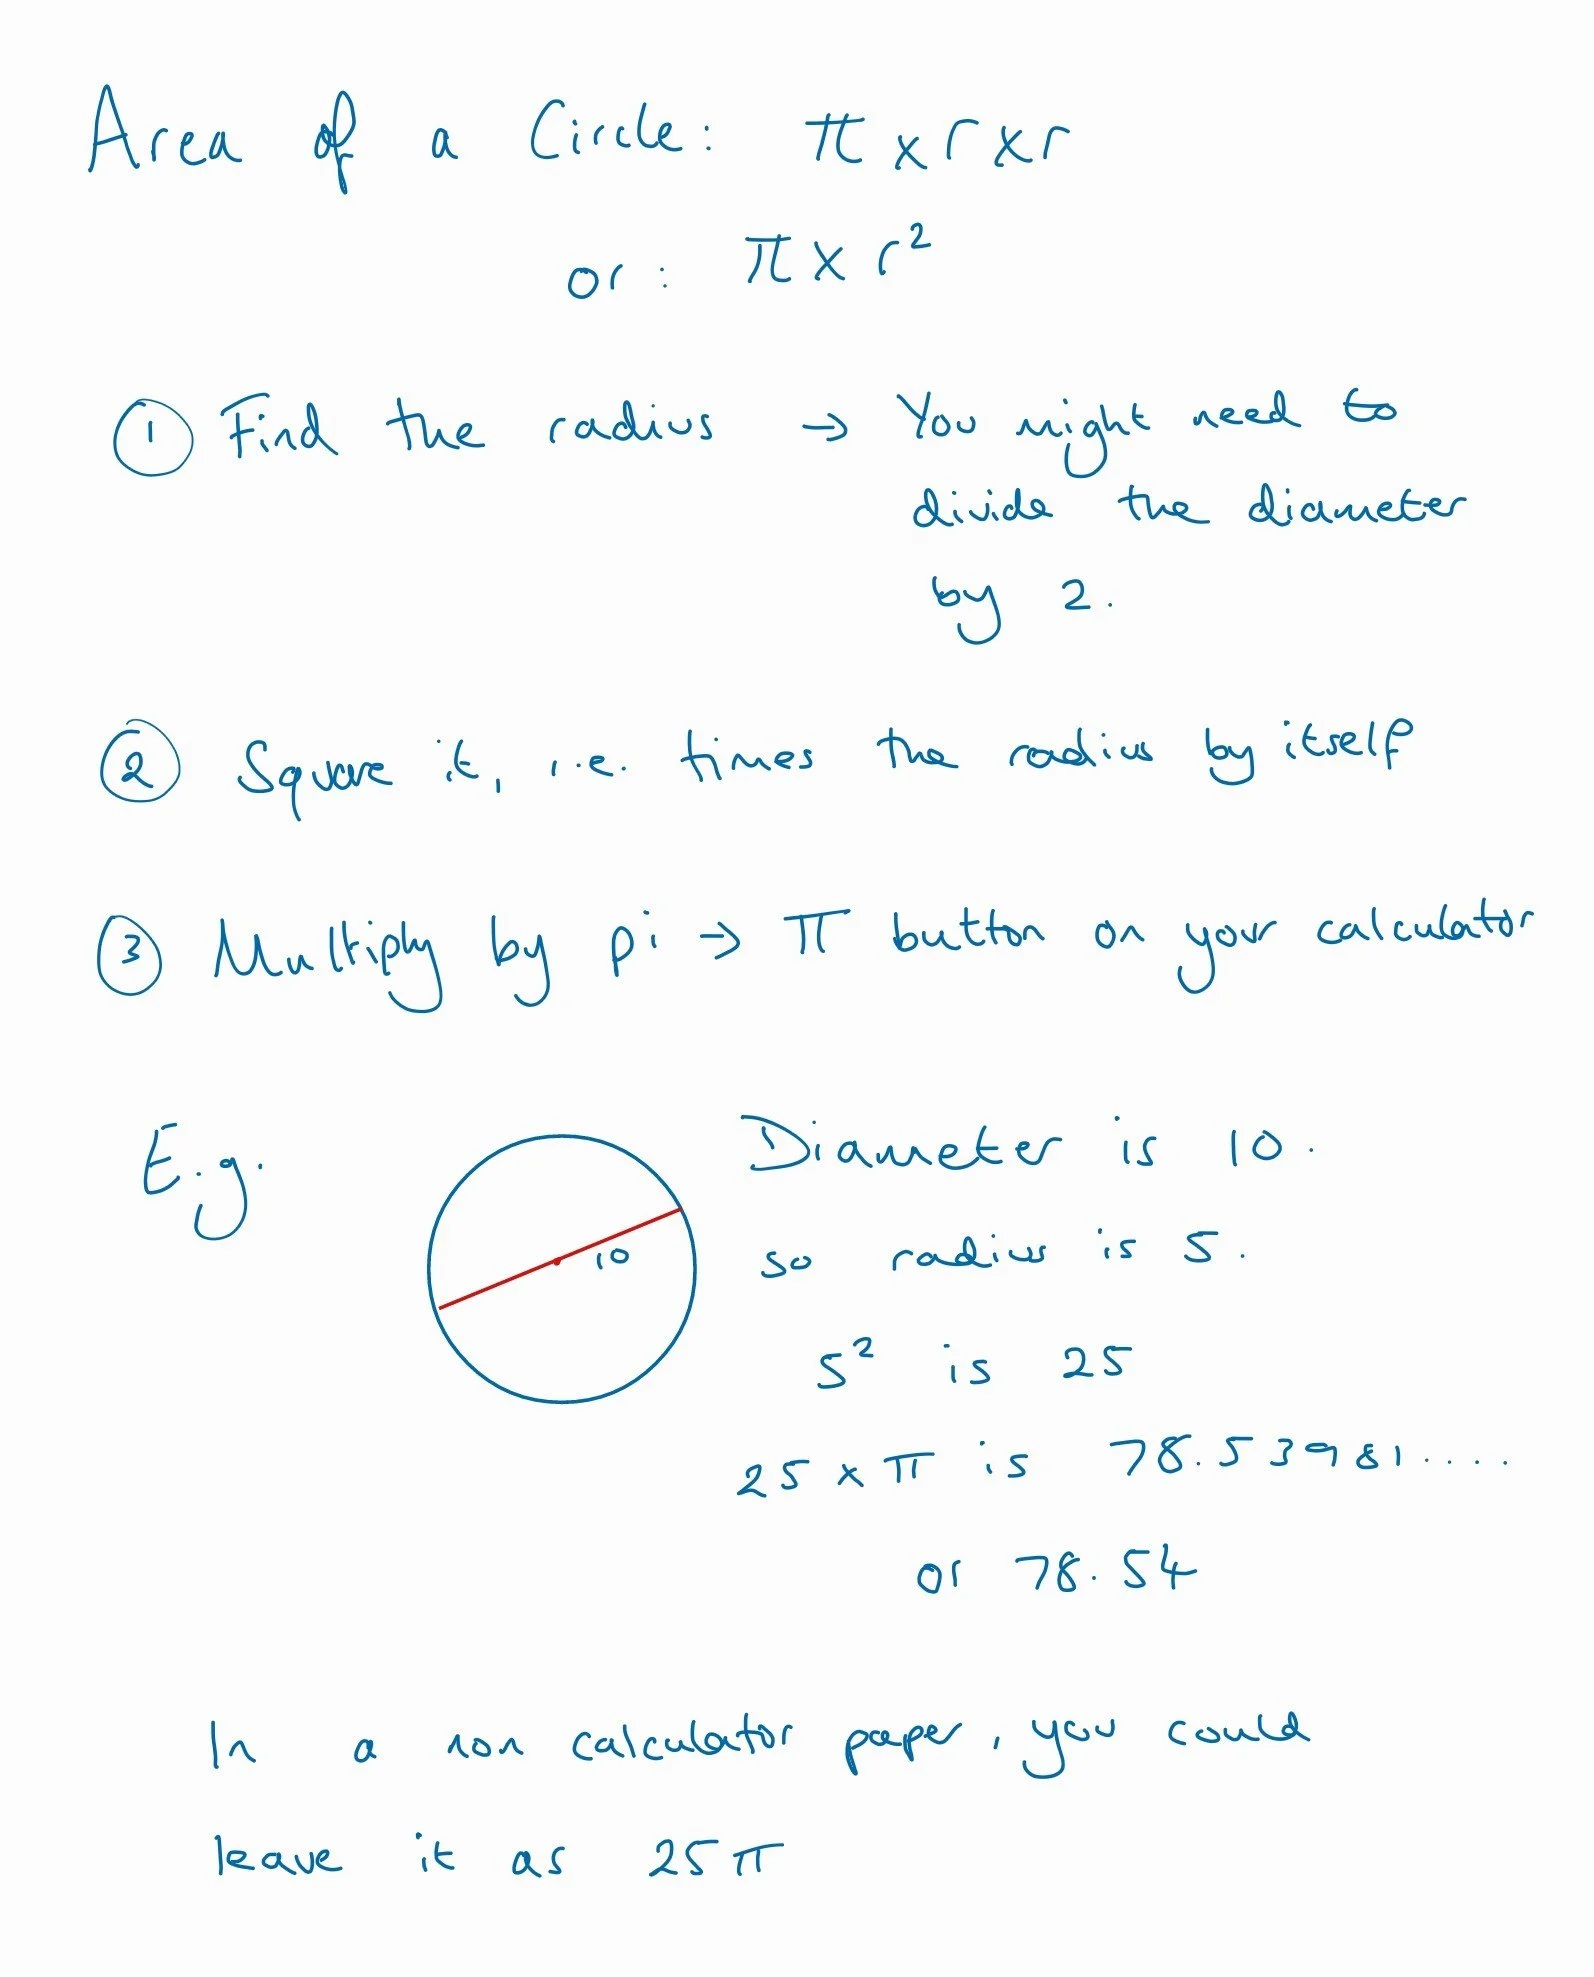 Area of a Circle: π x r x r
or: π x r²
① Find the radius → You might need to
divide the diameter
by 2.
② Square it, i.e. times the radius by itself
③ Multiply by pi → π button on your calculator
E.g.
10
Diameter is 10.
so radius is 5.
5² is 25
25 x π is 78.53981....
or 78.54
In a non calculator paper, you could
leave it as 25π